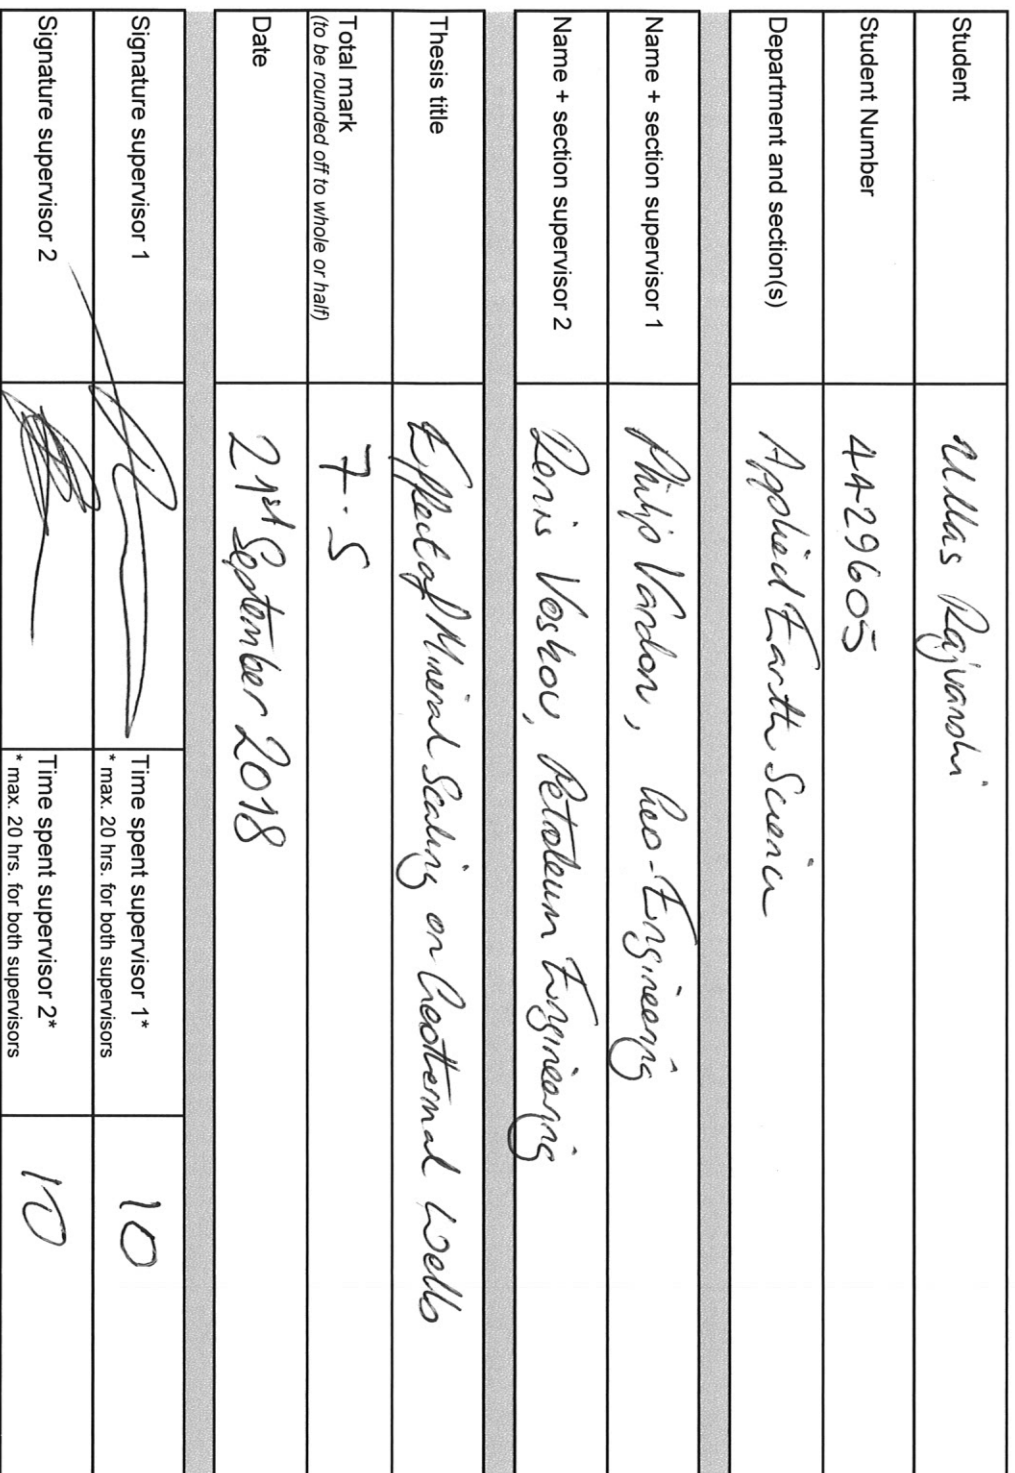 Student Ullas Rajvanshi
Student Number 4429605
Department and section(s) Applied Earth Science
Name + section supervisor 1 Philip Vardon, Geo-Engineering
Name + section supervisor 2 Denis Voskov, Petroleum Engineering
Thesis title Effect of Mineral Scaling on Geothermal Wells
Total mark 7.5
(to be rounded off to whole or half)
Date 21st September 2018
Signature supervisor 1 Time spent supervisor 1* 10
* max. 20 hrs. for both supervisors
Signature supervisor 2 Time spent supervisor 2* 10
* max. 20 hrs. for both supervisors